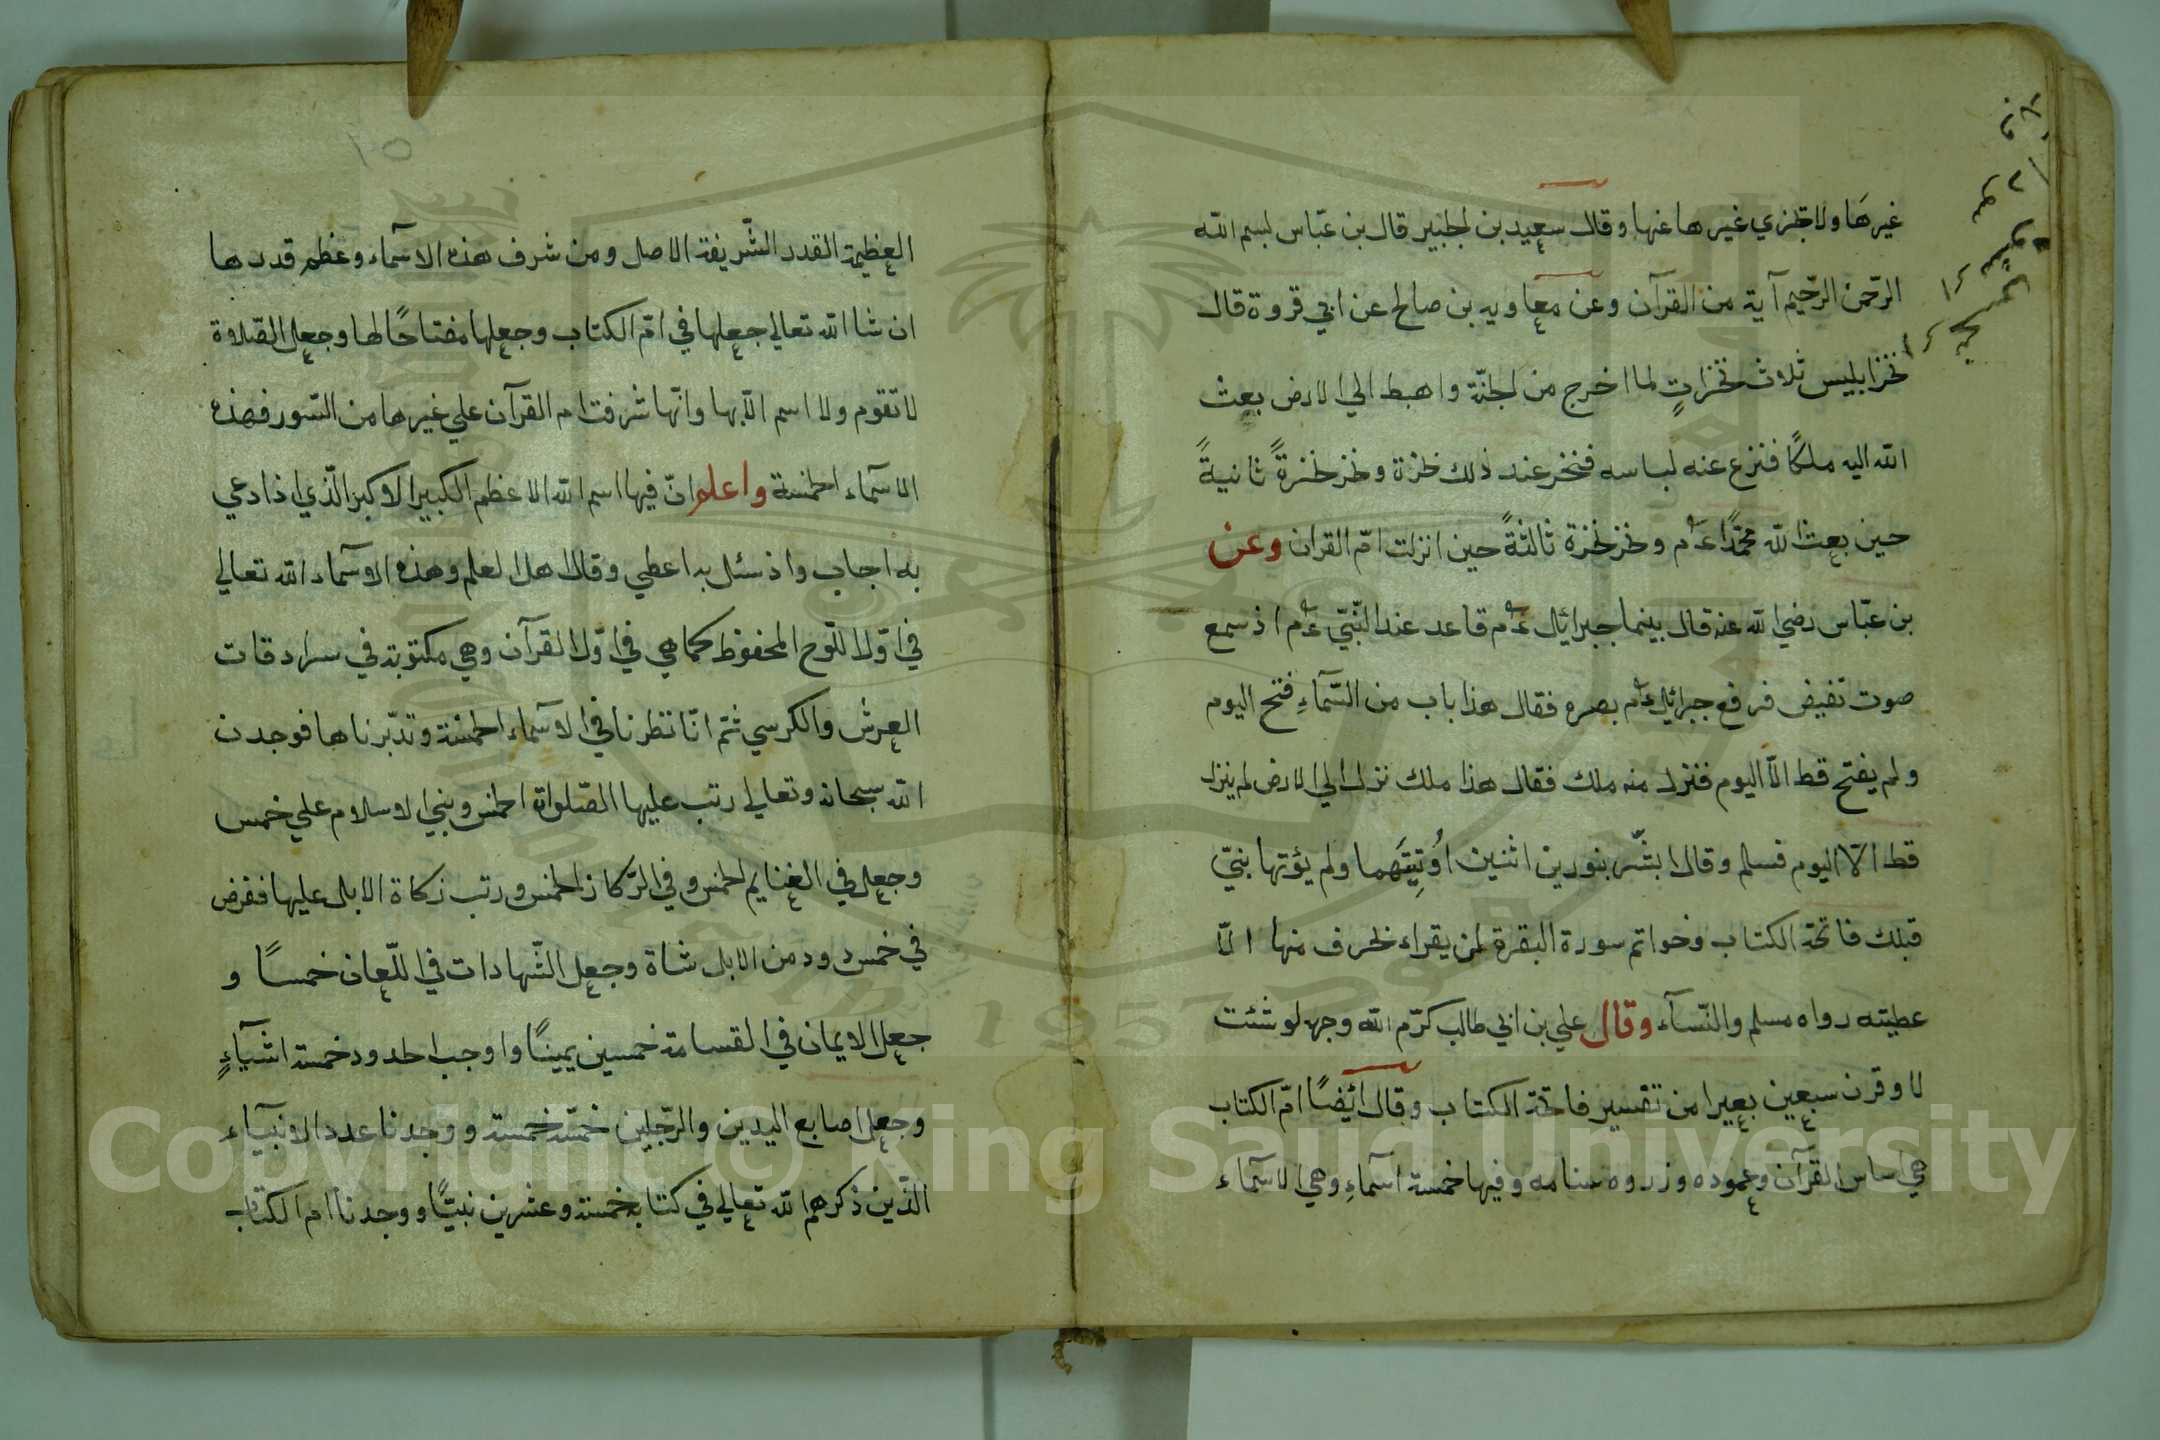 غيرها ولا تجزي غيرها عنها وقال سعيد بن لجبير قال بن عبّاس بسم الله
الرّحمن الرّحيم آية من القرآن وعن معاويه بن صالح عن ابي قروة قال
نخز ابليس ثلاث نخزاتٍ لما اخرج من لجنّة واهبط الي الارض بعث
الله اليه ملكًا فنزع عنه لباسه فنخر عند ذلك نخزة ونخز نخزةً ثانيةً
حين بعث الله محمّدًا ءم ونخز نخزة ثالثةً حين انزلت امّ القران وعن
بن عبّاس رضي الله عنه قال بينما جبرائيل ءم قاعد عند النّبيّ ءم اذ سمع
صوت نفيض فرفع جبرائيل ءم بصره فقال هذا باب من السّمآءِ فتح اليوم
ولم يفتح قط الّا اليوم فنزل منه ملك فقال هذا ملك نزل الي الارض لم ينزل
قط الّا اليوم فسلم وقال ابشّر بنورين اثنين اُوتِيتَهما ولم يؤتها نبيّ
قبلك فاتحة الكتاب وخواتم سورة البقرة لمن يقراء بحرف منها الّا
عطيته رواه مسلم والنّسآء وقال علي بن ابي طالب كرّم الله وجهه لو شئت
لاوقرن سبعين بعيرا من تفسير فاتحة الكتاب وقال ائيضًا امّ الكتاب
هي اساس القرآن وعموده وزروه سنامه وفيها خمسة اسمآءِ وهي الاسمآء
العظيمة القدر الشّريفة الاصل ومن شرف هذه الاسمآء وعظم قدرها
ان شا الله تعالي جعلها في امّ الكتاب وجعلها مفتاحًا لها وجعل الصّلاوة
لا تقوم ولا اسم الّا بها وانّها شرفت ام القرآن علي غيرها من السّور فهذه
الاسمآء الخمسة واعلم انّ فيها اسم الله الاعظم الكبير الاكبر الّذي اذا دعي
به اجاب واذ سئل به اعطي وقال اهل العلم وهذه الاسمآء الله تعالي
في اوّل اللّوح المحفوظ كما هي في اوّل القرآن وهي مكتوبة في سرادقات
العرش والكرسي ثمّ انّا نظرنا في الاسمآء الخمسة وتدبّرناها فوجدن
الله سبحانه وتعالي رتب عليها الصّلواة الخمس وبني الاسلام علي خمس
وجعل في الغنايم الخمس وفي الرّكاز الخمس ورتب زكاة الابل عليها ففرض
في خمس دود من الابل شاة وجعل الشّهادات في اللّعان خمسًا و
جعل الايمان في القسامة خمسين يمينًا واوجب الحدود خمسة اشيآءٍ
وجعل اصابع اليدين والرّجلين خمسّة خمسة ووجدنا عدد الانبيآء
الذّين ذكرهم الله تعالي في كتابه خمسة وعشرين نبيًّا ووجدنا ام الكتاب
Copyright © King Saud University
1957